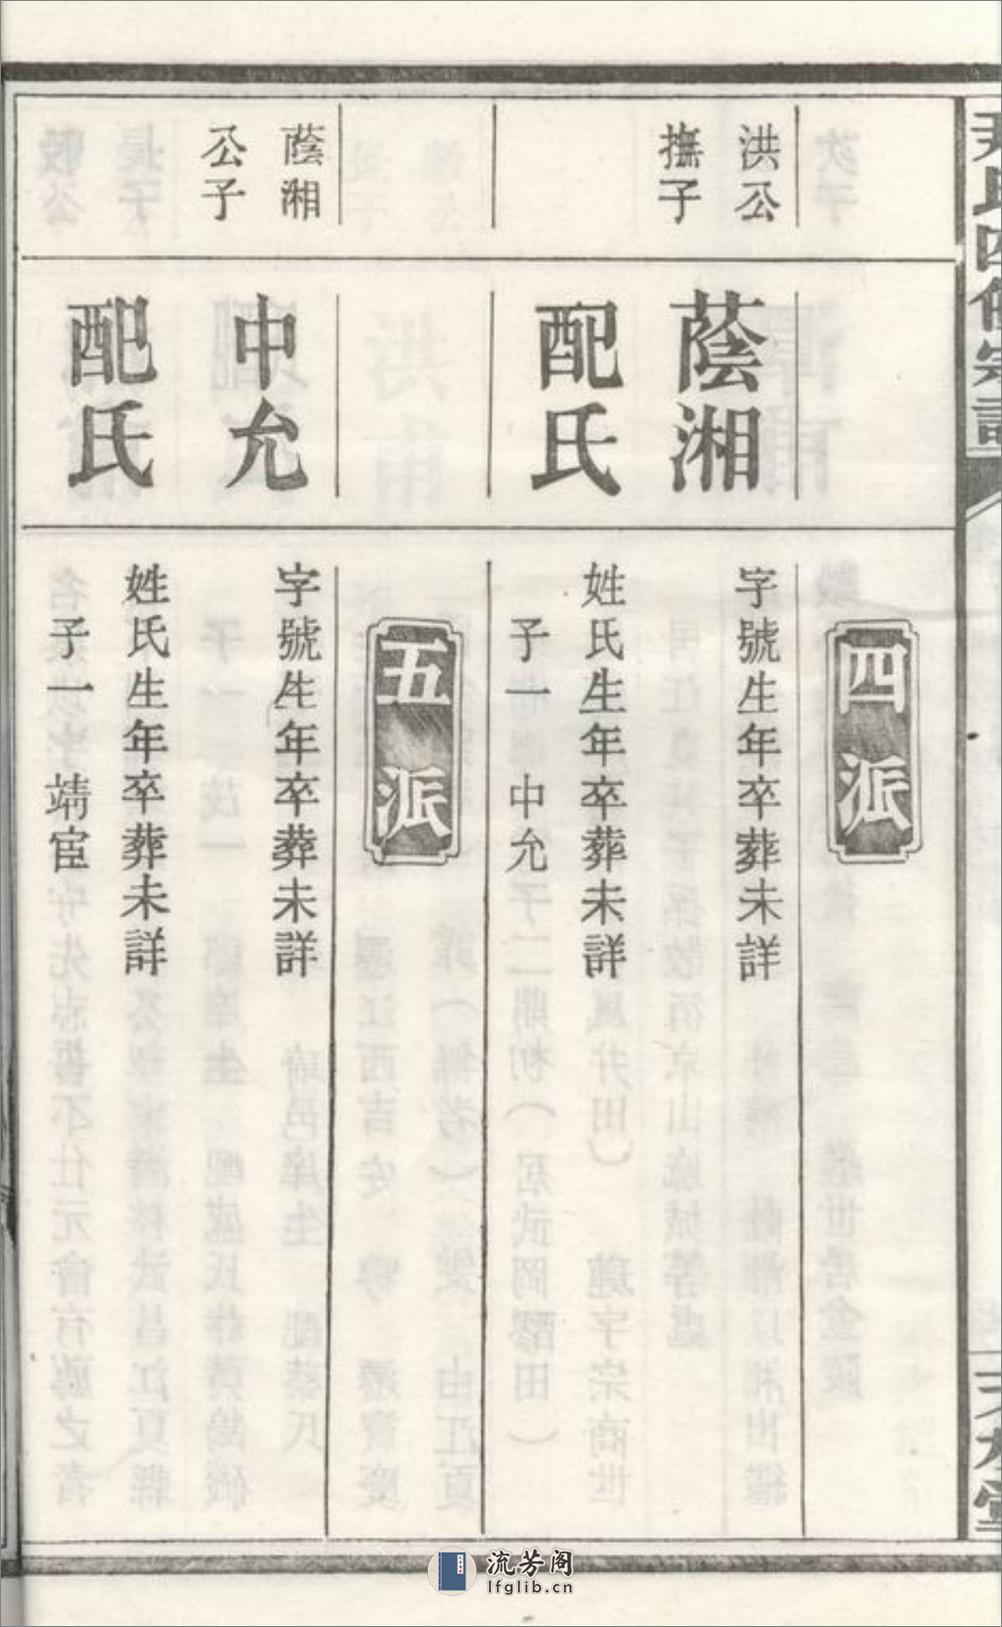 四派
洪公
撫子
蔭湘
字號生年卒葬未詳
配氏
姓氏生年卒葬未詳
子一 中允
五派
蔭湘
公子
中允
字號生年卒葬未詳
配氏
姓氏生年卒葬未詳
子一 靖宦
流芳阁
lfglib.cn